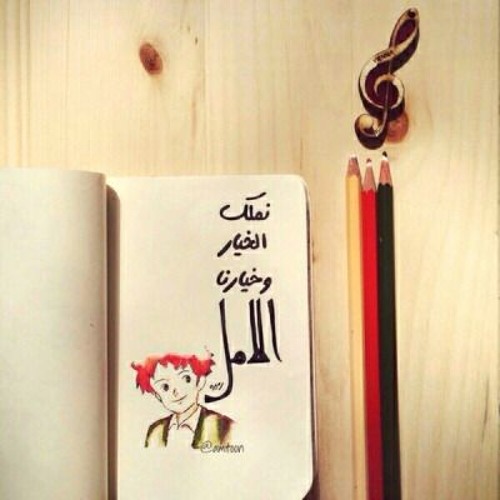 نملك
الخيار
وخيارنا
الامل
@amitoon